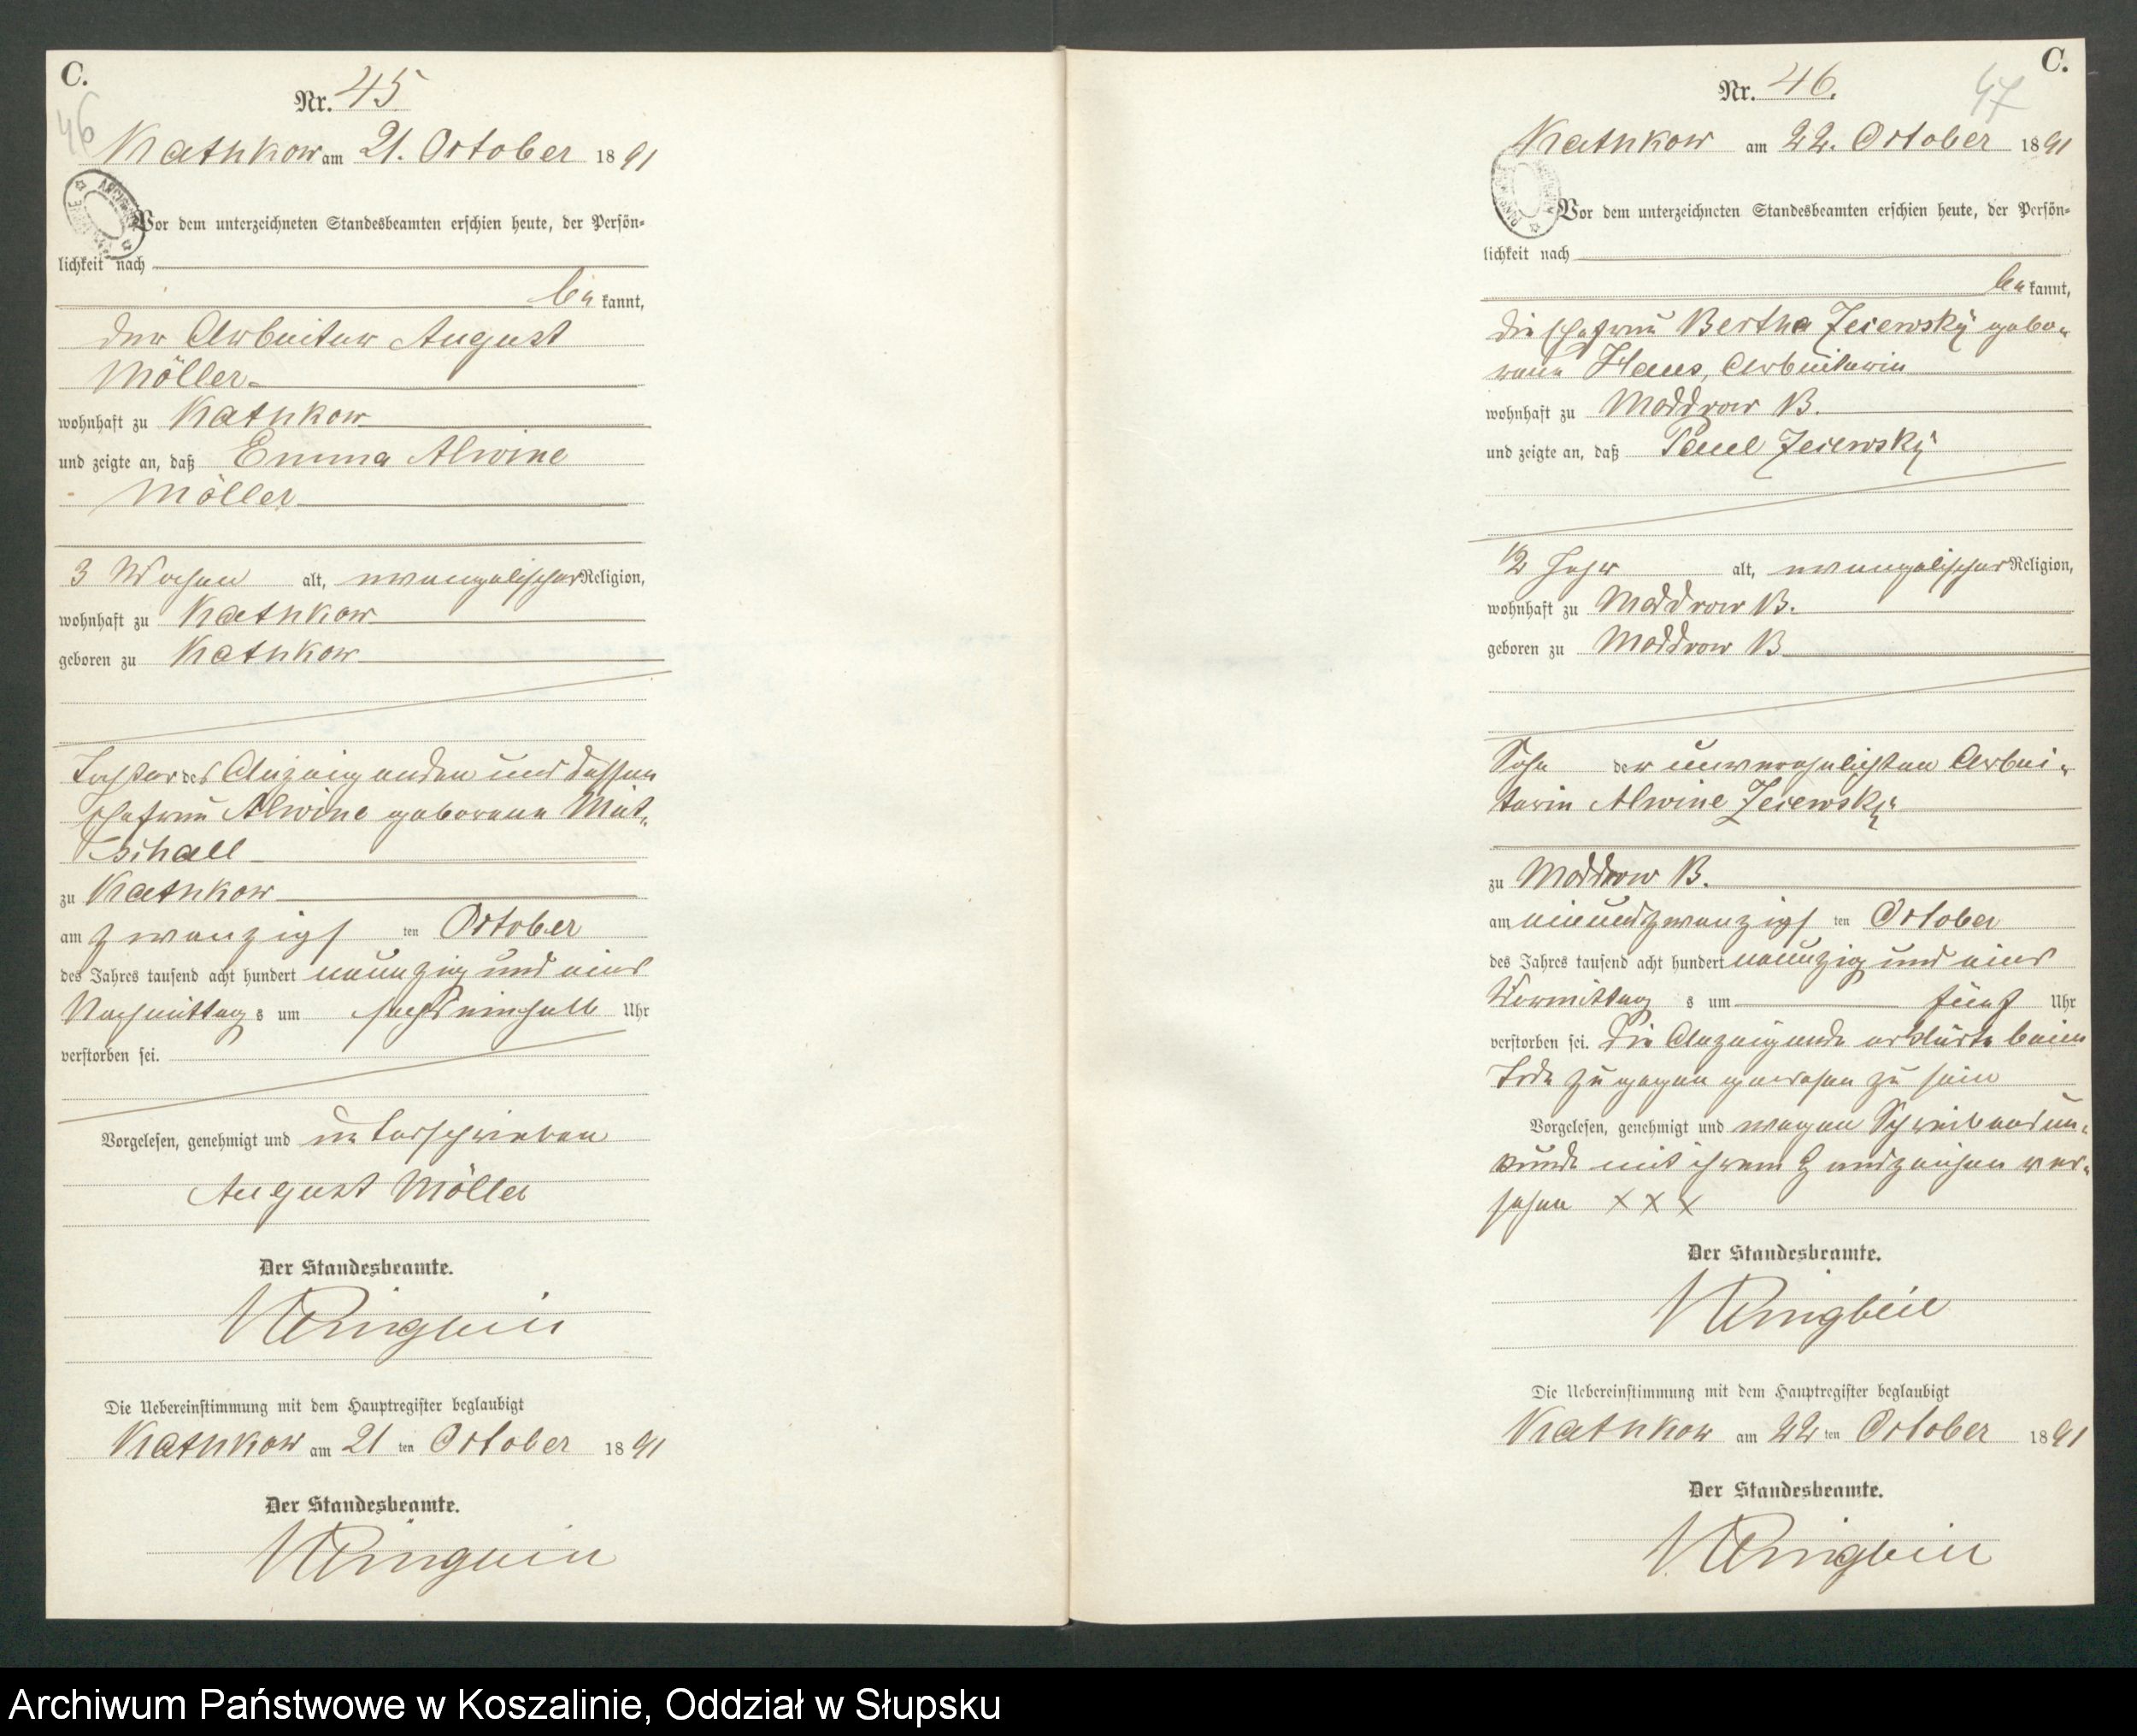 C.
46
Nr. 45
Kathkow am 21. October 1891
Vor dem unterzeichneten Standesbeamten erschien heute, der Persön-
lichkeit nach
bekannt,
der Arbeiter August
Möller
wohnhaft zu Kathkow
und zeigte an, daß Emma Alwine
Möller
3 Wochen alt, evangelischer Religion,
wohnhaft zu Kathkow
geboren zu Kathkow
Tochter des Anzeigenden und dessen
Ehefrau Alwine geborene Mut-
schall
zu Kathkow
am zwanzigsten October
des Jahres tausend acht hundert neunzig und eins
Nachmittags um sechseinhalb Uhr
verstorben sei.
Vorgelesen, genehmigt und unterschrieben
August Möller
Der Standesbeamte.
Die Uebereinstimmung mit dem Hauptregister beglaubigt
Kathkow am 21 ten October 1891
Der Standesbeamte.
C.
47
Nr. 46.
Kathkow am 22. October 1891
Vor dem unterzeichneten Standesbeamten erschien heute, der Persön-
lichkeit nach
bekannt,
die Ehefrau Bertha Jeiewsky gebo-
rene Haus, Arbeiterin
wohnhaft zu Moddrow B.
und zeigte an, daß Paul Jeiewsky
1/2 Jahr alt, evangelischer Religion,
wohnhaft zu Moddrow B.
geboren zu Moddrow B
Sohn der unverehelichten Arbei-
terin Alwine Jeiewsky
zu Moddrow B.
am einundzwanzigsten October
des Jahres tausend acht hundert neunzig und eins
Vormittags um fünf Uhr
verstorben sei. Die Anzeigende erklärte beim
Tode zugegen gewesen zu sein
Vorgelesen, genehmigt und wegen Schreibensun-
kunde mit ihrem Handzeichen ver-
sehen X X X
Der Standesbeamte.
Die Uebereinstimmung mit dem Hauptregister beglaubigt
Kathkow am 22 ten October 1891
Der Standesbeamte.
Archiwum Państwowe w Koszalinie, Oddział w Słupsku